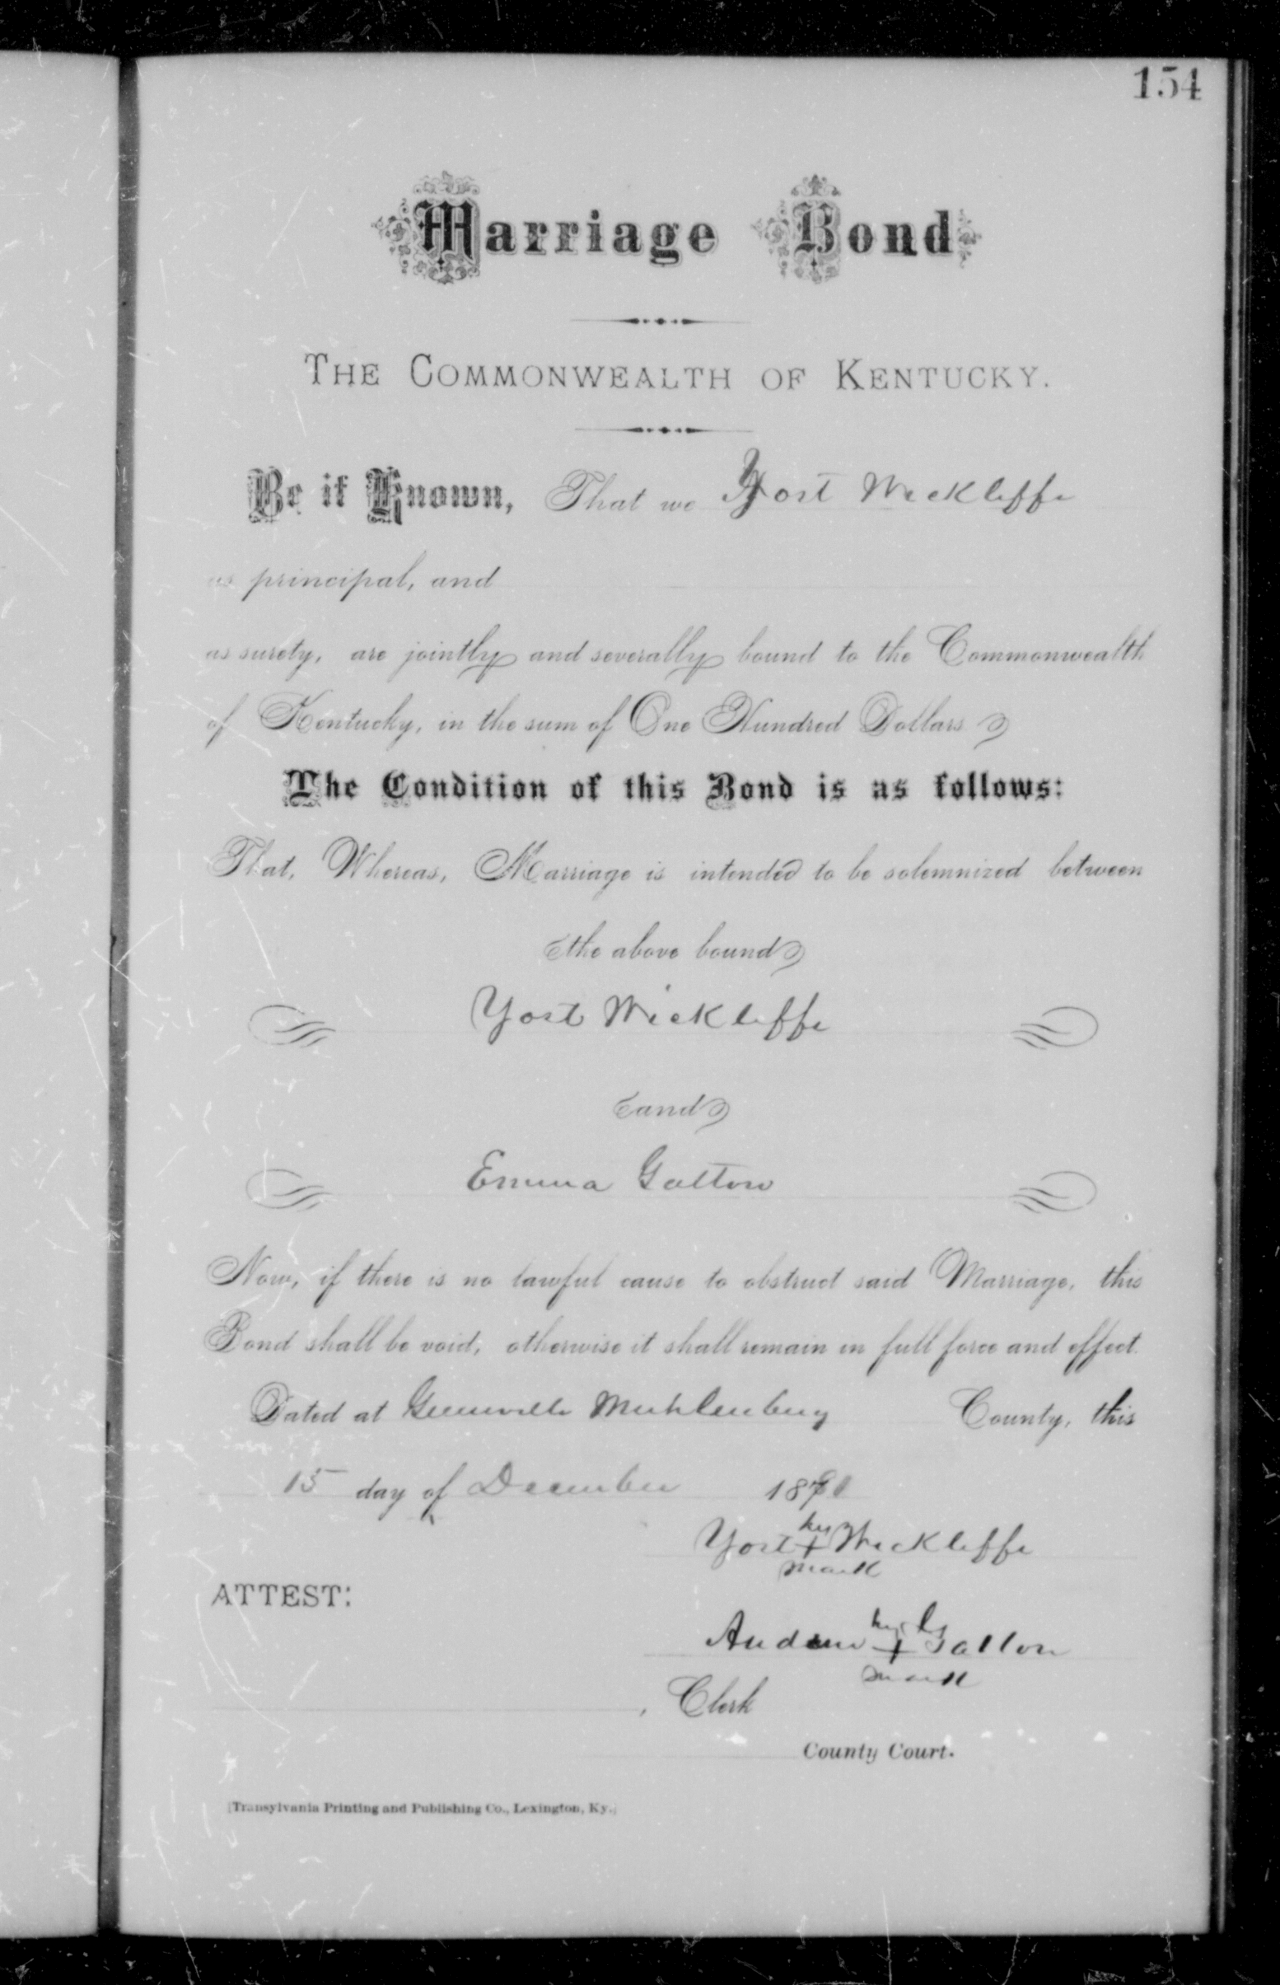 154
Marriage Bond
THE COMMONWEALTH OF KENTUCKY.
Be it Known, That we Yost Wickliffe
as principal, and
as surety, are jointly and severally bound to the Commonwealth
of Kentucky, in the sum of One Hundred Dollars
The Condition of this Bond is as follows:
That, Whereas, Marriage is intended to be solemnized between
the above bound
Yost Wickliffe
and
Emma Galton
Now, if there is no lawful cause to obstruct said Marriage, this
Bond shall be void, otherwise it shall remain in full force and effect.
Dated at Greenville Muhlenburg County, this
15 day of December 18
his
Yost + Wickliffe
mark
ATTEST:
his
Andrew + Galton
mark
, Clerk
County Court.
[Transylvania Printing and Publishing Co., Lexington, Ky.]